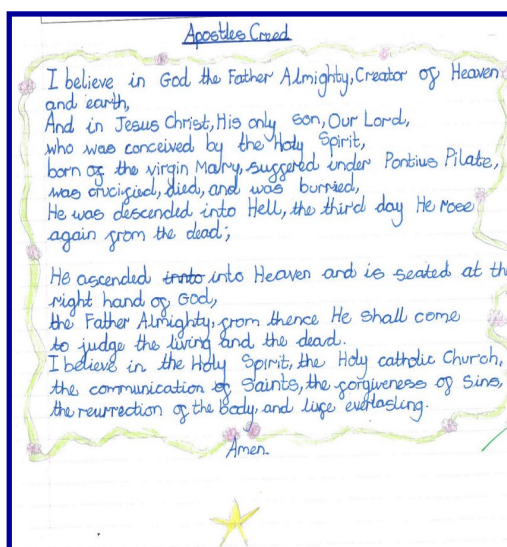 Apostles Creed
I believe in God the Father Almighty, Creator of Heaven
and earth,
And in Jesus Christ, His only son, Our Lord,
who was conceived by the Holy Spirit,
born of the virgin Mary, suffered under Pontius Pilate,
was crucified, died, and was burried,
He was descended into Hell, the third day He rose
again from the dead;
He ascended innto into Heaven and is seated at th
right hand of God,
the Father Almighty, from thence He shall come
to judge the living and the dead.
I believe in the Holy Spirit, the Holy catholic Church,
the communication of Saints, the forgiveness of Sins,
the reurrection of the Body, and life everlasting.
Amen.